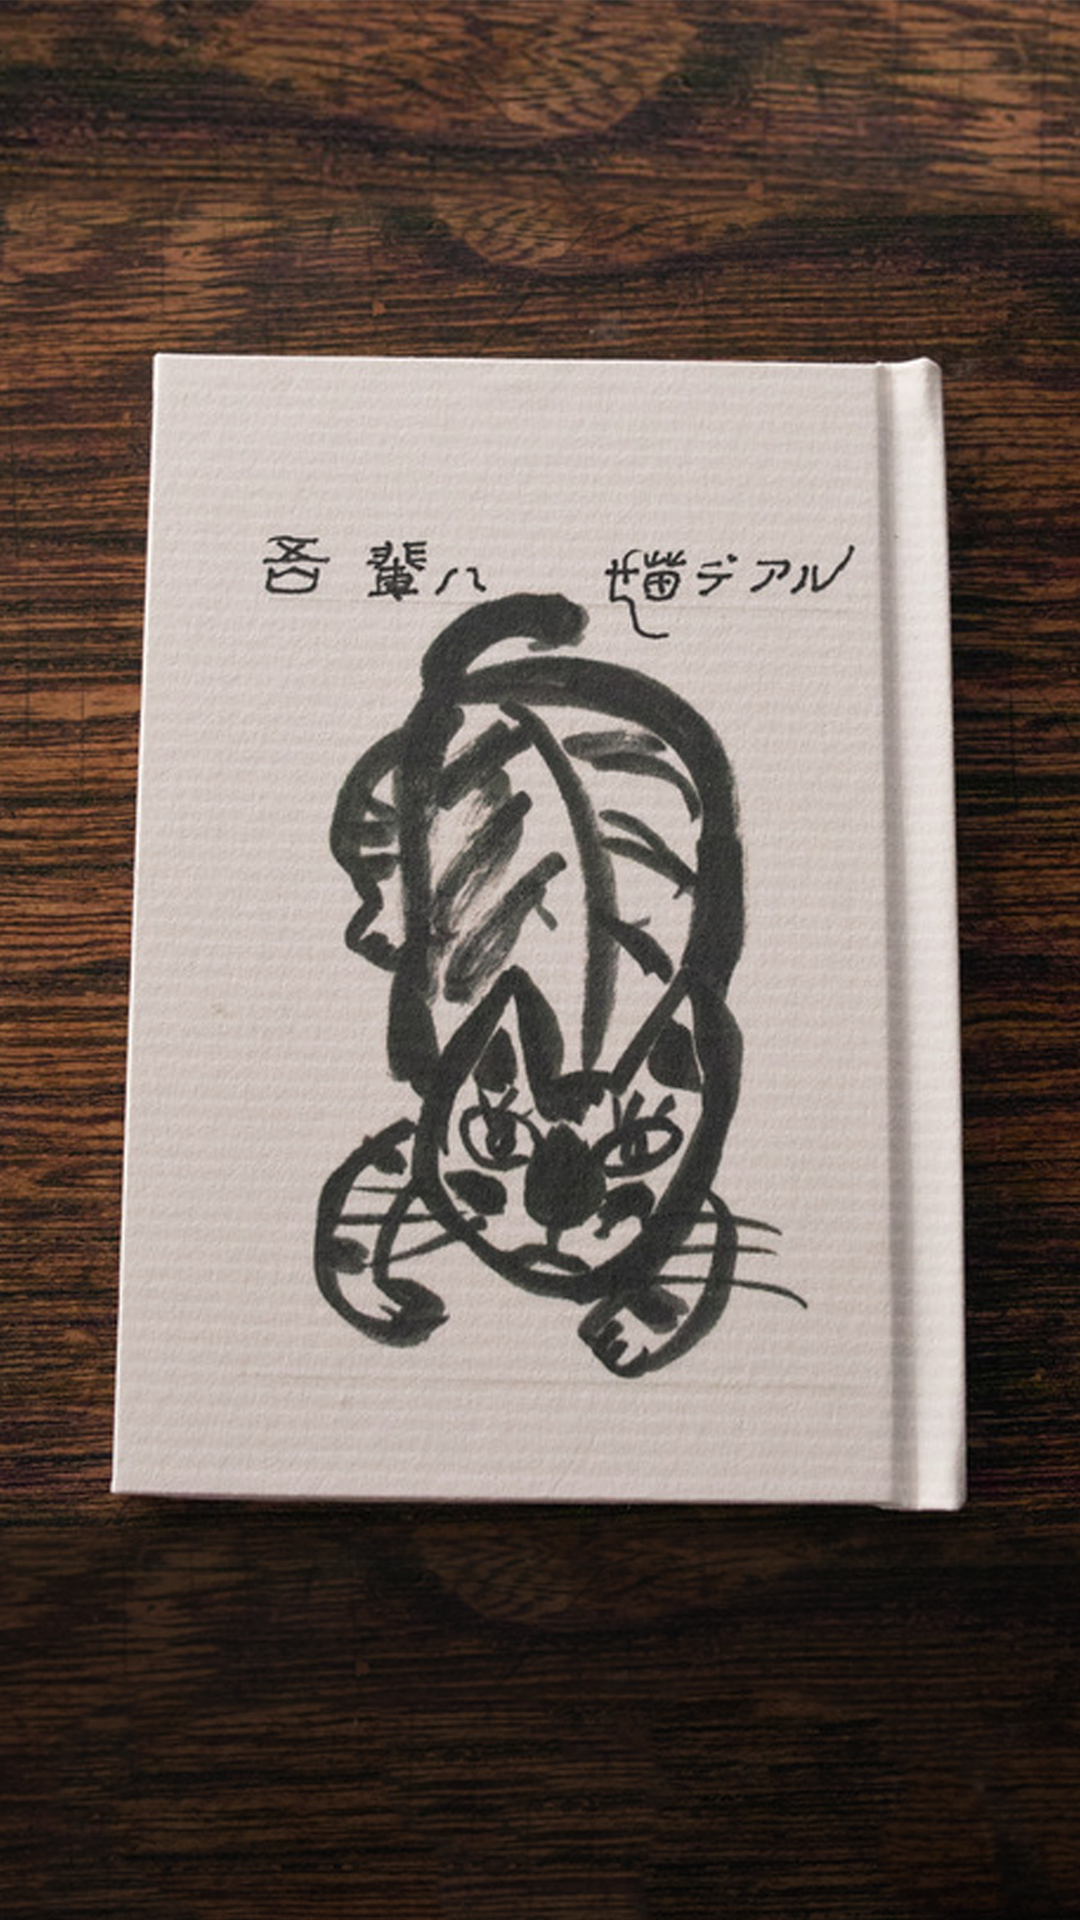 吾輩ハ 猫デアル